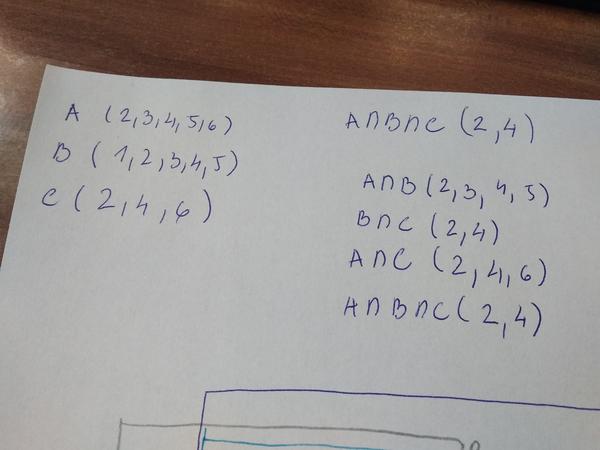 A (2,3,4,5,6)
B (1,2,3,4,5)
C (2,4,6)
A∩B∩C (2,4)
A∩B (2,3,4,5)
B∩C (2,4)
A∩C (2,4,6)
A∩B∩C (2,4)